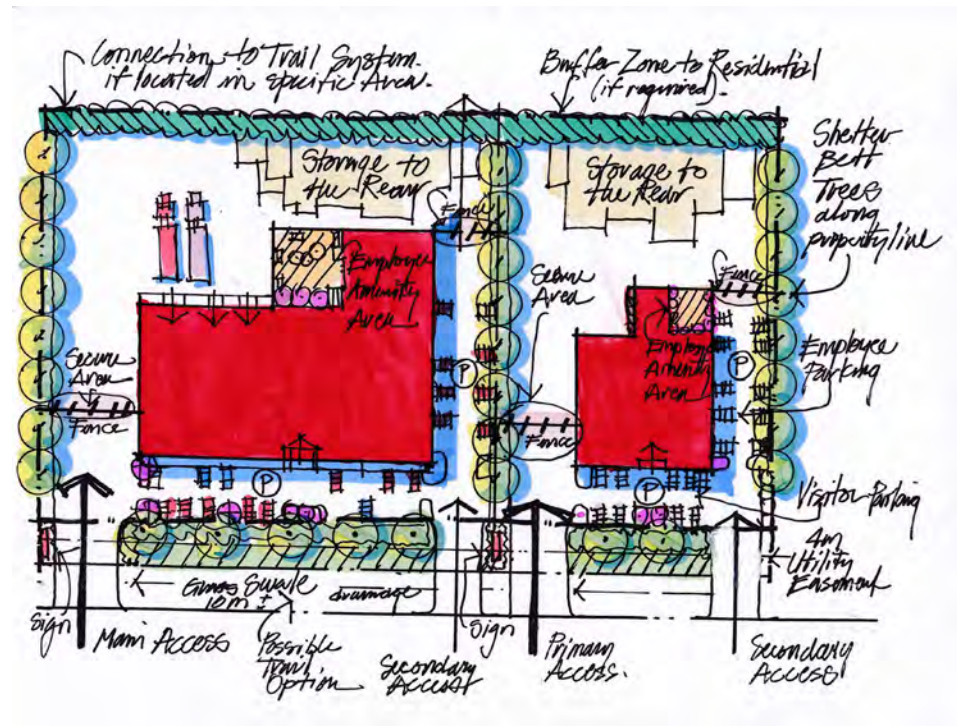 Connection to Trail System
if located in specific Area.
Buffer Zone to Residential
(if required).
Shelter
Belt
Trees
along
property line
Storage to
the Rear
Storage to
the Rear
Fence
Employee
Amenity
Area
Secure
Area
Fence
Employee
Amenity
Area
Employee
Parking
Secure
Area
Fence
Fence
P
P
P
P
Visitor Parking
4m
Utility
Easement
Grass Swale
10m ±
drainage
Sign
Main Access
Possible
Trail
Option
Secondary
Access
Sign
Primary
Access.
Secondary
Access